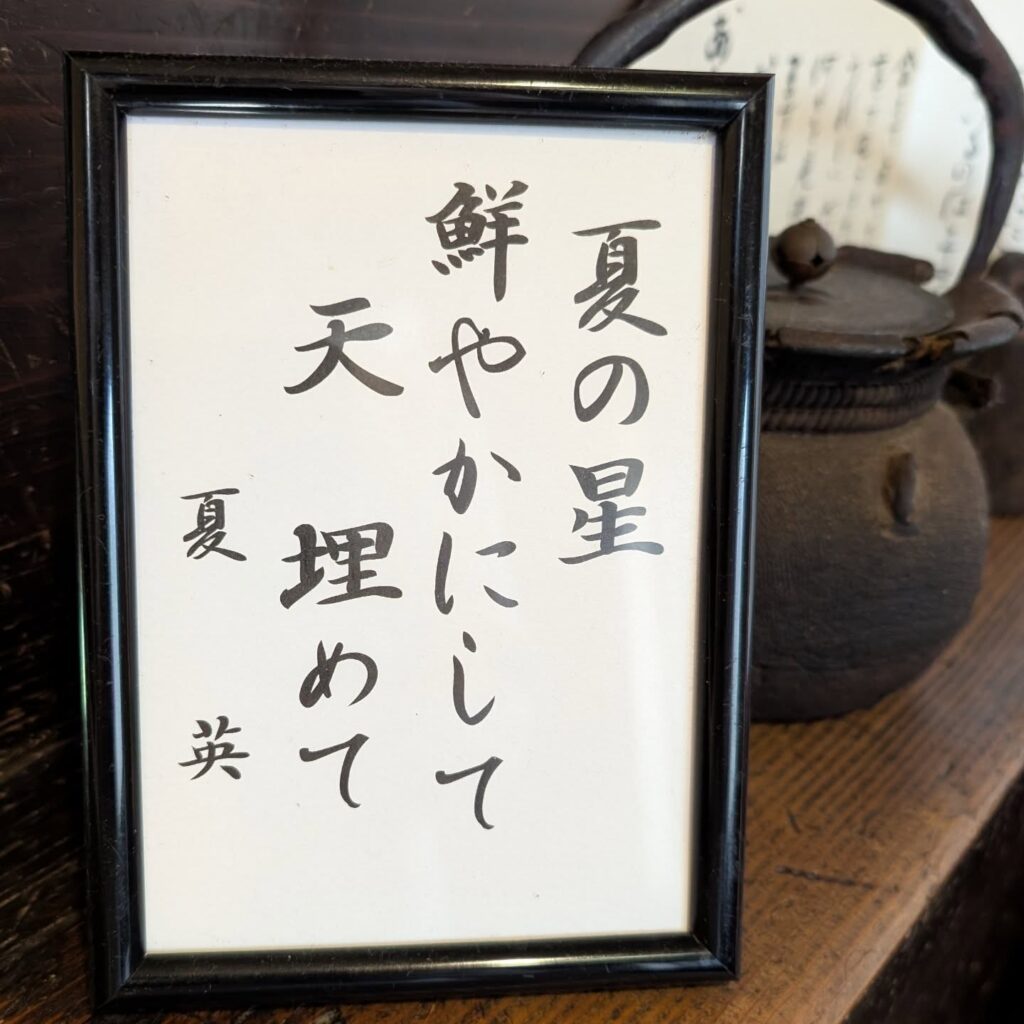 夏の星
鮮やかにして
天埋めて
夏英